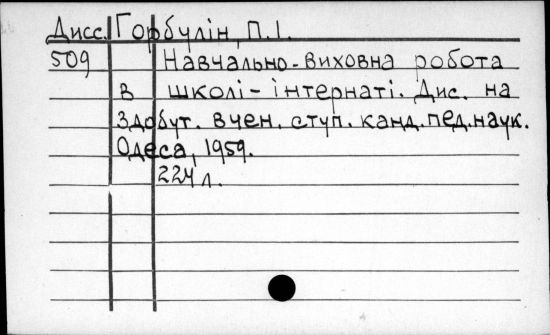 Дисс. Горбулін, П.І.
509 Навчально-виховна робота
в школі-інтернаті. Дис. на
здобут. вчен. ступ. канд. пед. наук.
Одеса, 1959.
224 л.